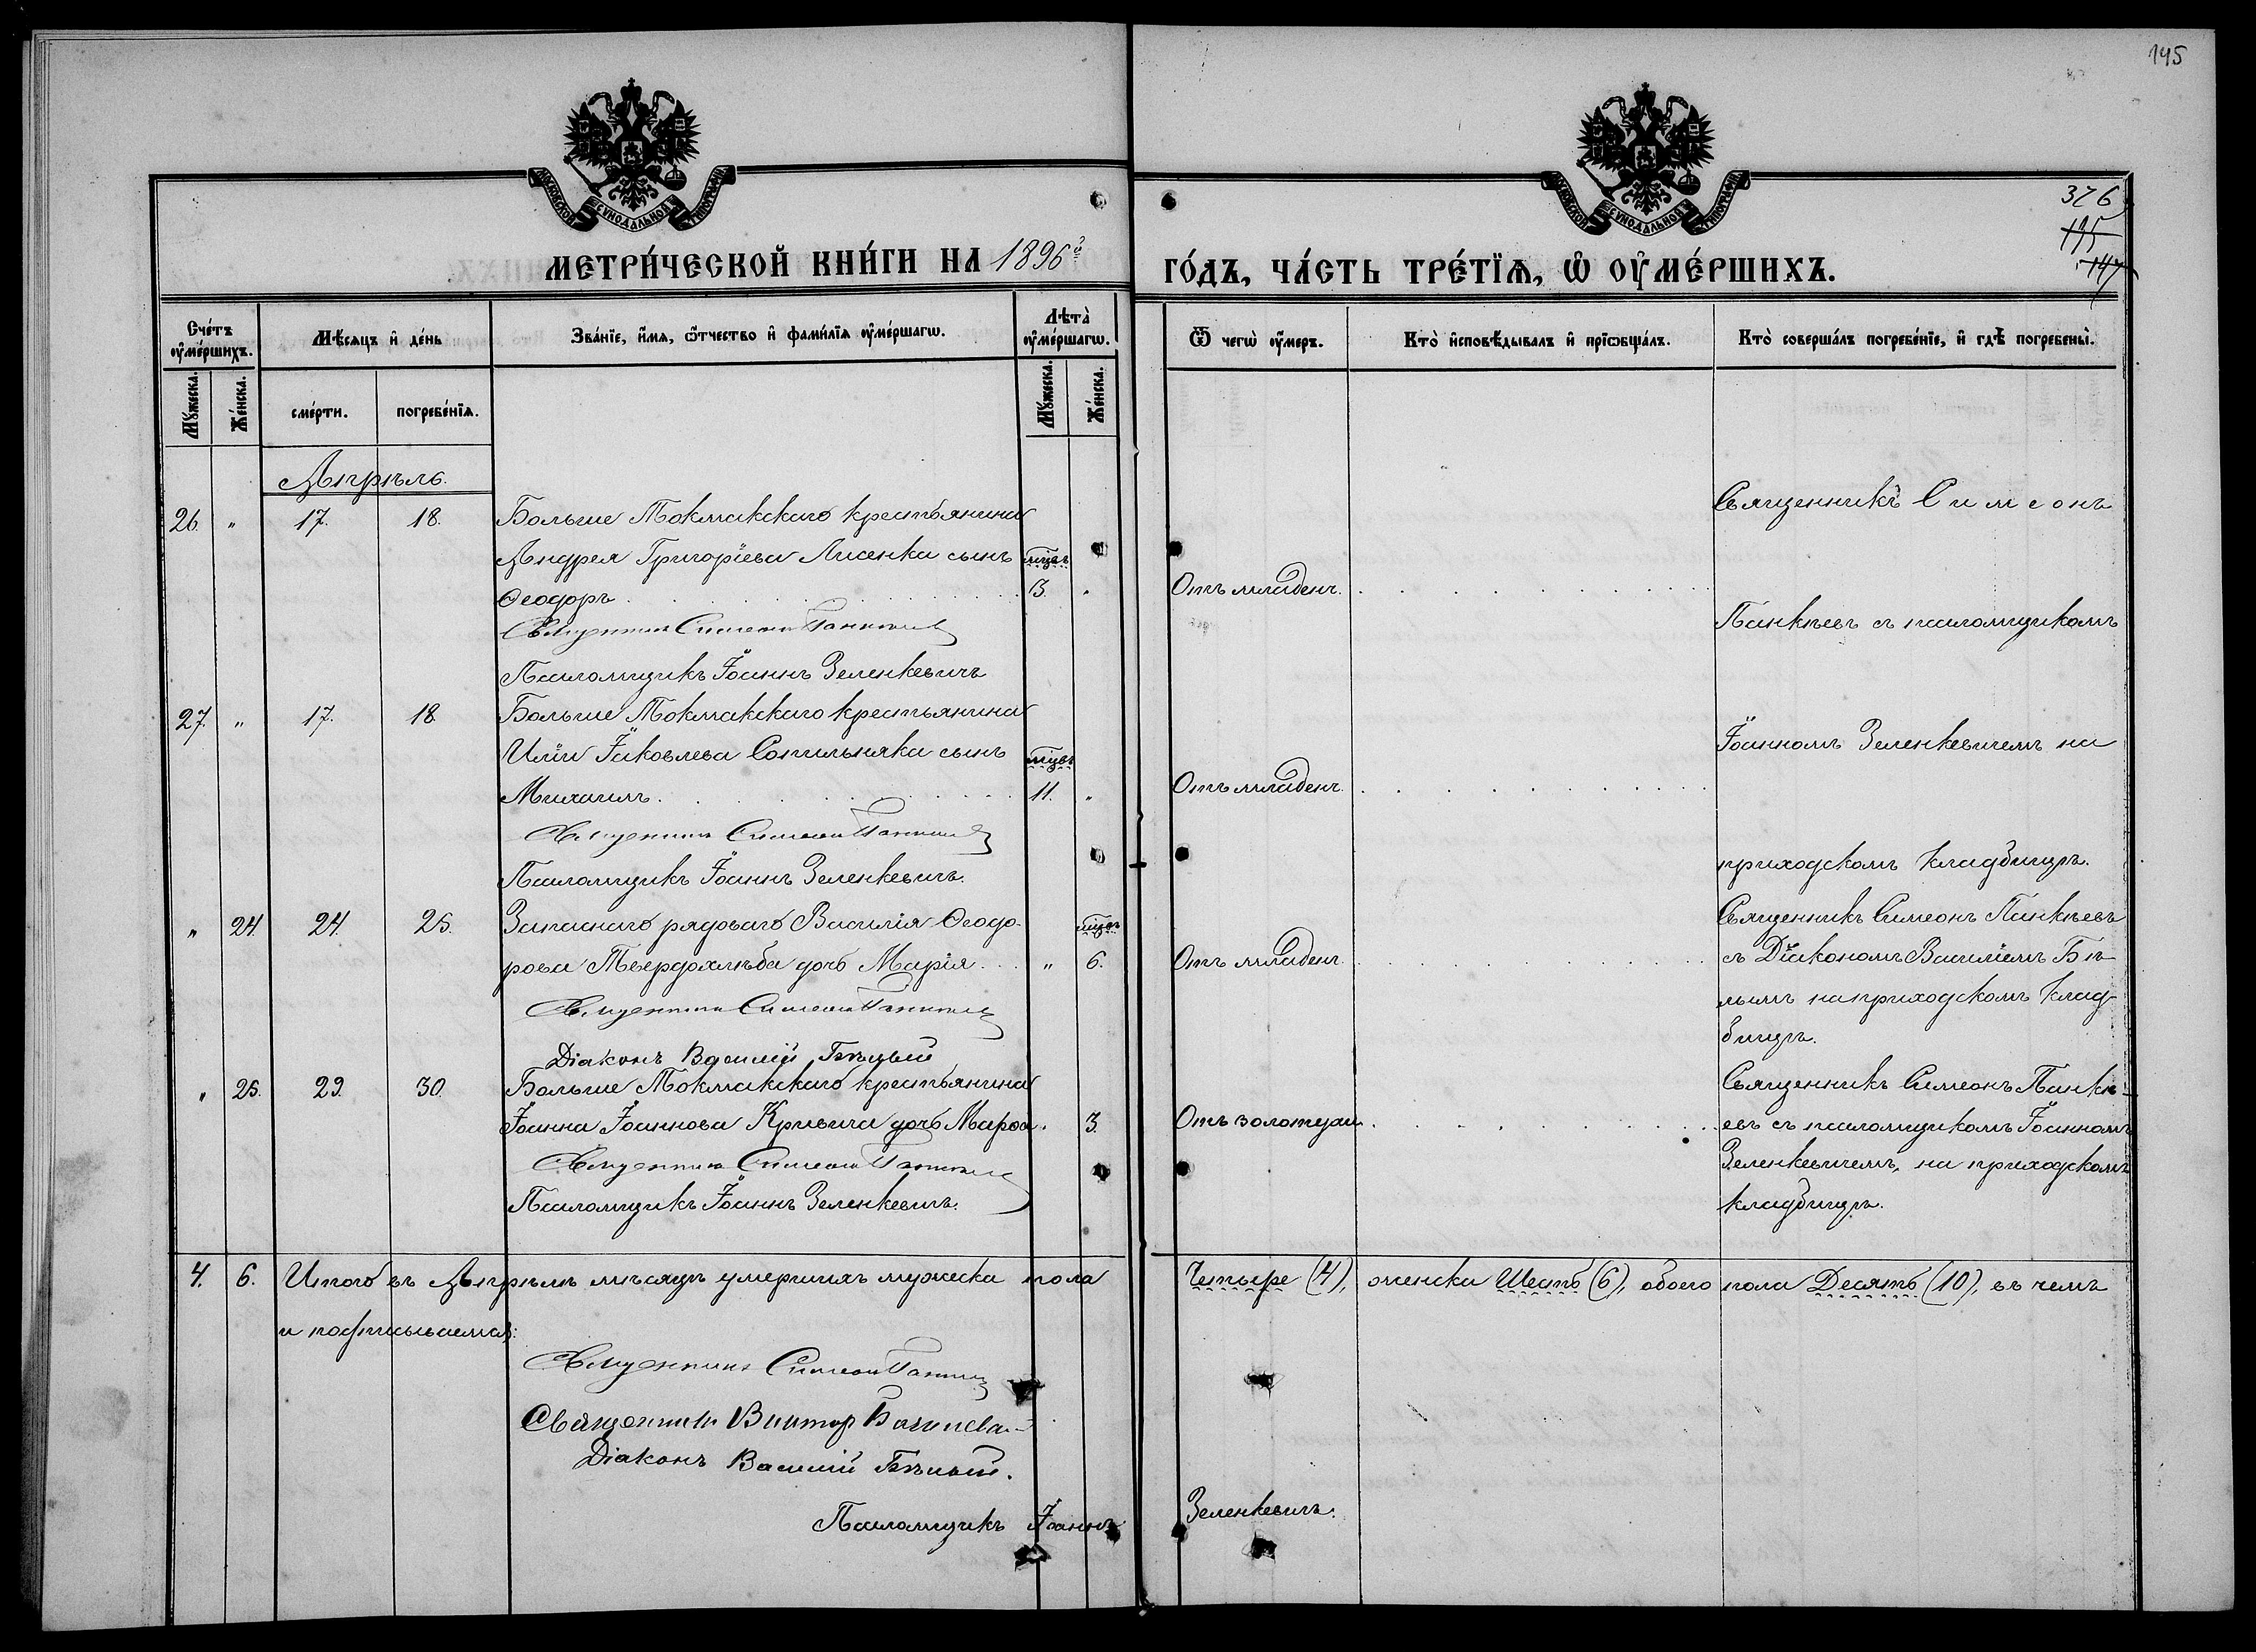 145
МОСКОВСКОЙ СѴНОДАЛЬНОЙ ТИПОГРАФІИ
МОСКОВСКОЙ СѴНОДАЛЬНОЙ ТИПОГРАФІИ
326
195
147
МЕТРИ́ЧЕСКОЙ КНИ́ГИ НА 1896й
ГО́ДЪ, ЧА́СТЬ ТРЕ́ТЇѦ, Ѡ҆ ОУ҆МЕ́РШИХЪ.
Сче́тъ оу҆ме́ршихъ.
Мꙋ́жеска.
Же́нска.
Мѣ́сяцъ и҆ де́нь
сме́рти.
погребе́нїѧ.
Зва́нїе, и҆́мѧ, ѻ҆́тчество и҆ фами́лїѧ оу҆ме́ршагѡ.
Лѣта̀ оу҆ме́ршагѡ.
Мꙋ́жеска.
Же́нска.
Ѿ чегѡ̀ оу҆́меръ.
Кто̀ и҆сповѣ́дывалъ и҆ прїѡбща́лъ.
Кто̀ соверша́лъ погребе́нїе, и҆ гдѣ̀ погребены̀.
Апрѣль.
26. " 17. 18. Больше Токмакскаго крестьянина
Андрея Григоріева Лисенка сынъ мцвъ
Ѳеодоръ 3. " Отъ младенч.
Священникъ Симеонъ Панкѣев
Псаломщикъ Іоаннъ Зеленкевичъ
Священникъ Симеонъ
Панкѣевъ съ псаломщикомъ
Іоанномъ Зеленкевичемъ на
приходскомъ кладбищѣ.
27. " 17. 18. Больше Токмакскаго крестьянина
Иліи Іаковлева Сопильняка сынъ мцвъ
Михаилъ. 11. " Отъ младенч.
Священникъ Симеонъ Панкѣев
Псаломщикъ Іоаннъ Зеленкевичъ.
" 24. 24. 25. Запаснаго рядоваго Василія Ѳеодо- мцвъ
рова Твердохлѣба дочь Марія " 6. Отъ младенч.
Священникъ Симеонъ Панкѣев
Діаконъ Василій Бѣлый
Священникъ Симеонъ Панкѣевъ
съ Діакономъ Василіемъ Бѣ-
лымъ на приходскомъ клад-
бищѣ.
" 25. 29. 30. Больше Токмакскаго крестьянина
Іоанна Іоаннова Кривича дочь Марѳа. 3. Отъ золотухи
Священникъ Симеонъ Панкѣев
Псаломщикъ Іоаннъ Зеленкевичъ.
Священникъ Симеонъ Панкѣ-
евъ съ псаломщикомъ Іоанномъ
Зеленкевичемъ, на приходскомъ
кладбищѣ.
4. 6. Итого въ Апрѣлѣ мѣсяцѣ умершихъ мужеска пола Четыре (4), женска Шесть (6), обоего пола Десять (10), въ чемъ
и подписываемся:
Священникъ Симеонъ Панкѣев
Священникъ Виктор
Діаконъ Василій Бѣлый.
Псаломщикъ Іоаннъ Зеленкевичъ.